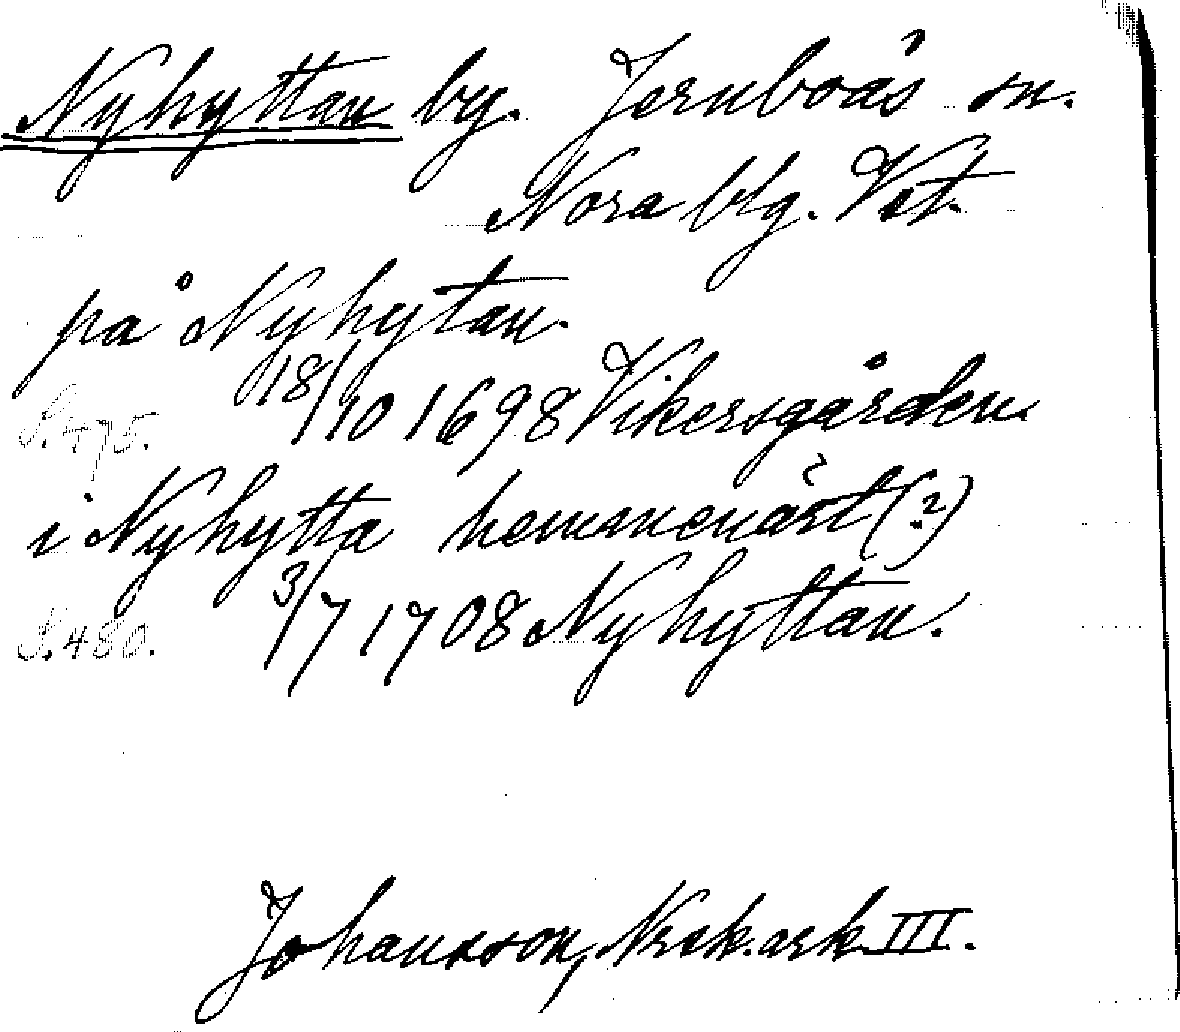 Nyhyttan by. Jernboås sn.
Nora blg. Vst.
på Nyhytan.
S. 475. 18/10 1698 Vikersgården
i Nyhytta hemmenäst (?)
S. 480. 3/7 1708 Nyhyttan.
Johansson, Nrck. ark III.